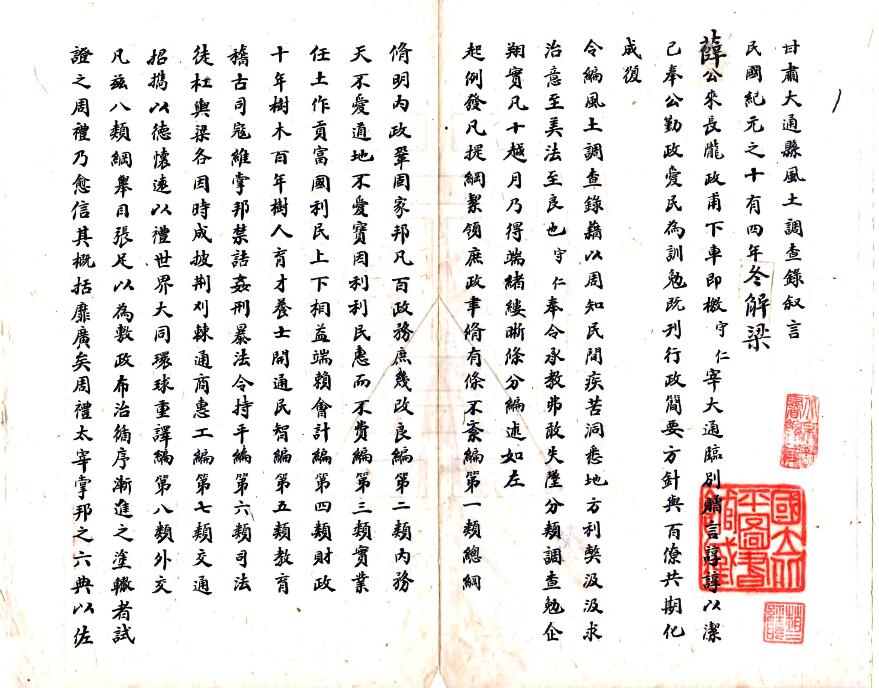 甘肅大通縣風土調查錄叙言
民國紀元之十有四年冬解梁
薛公來長隴政甫下車即檄守仁宰大通臨別贈言諄諄以潔
己奉公勤政愛民為訓勉既刊行政簡要方針與百僚共期化
成復
令編風土調查錄藉以周知民間疾苦洞悉地方利弊汲汲求
治意至美法至良也守仁奉令承教弗敢失墜分類調查勉企
翔實凡十越月乃得端緒縷晰條分編述如左
起例發凡提綱絜領庶政聿脩有條不紊編第一類總綱
脩明內政鞏固家邦凡百政務庶幾改良編第二類內務
天不愛道地不愛寶因利利民惠而不費編第三類實業
任土作貢富國利民上下相益端賴會計編第四類財政
十年樹木百年樹人育才養士開通民智編第五類教育
稽古司寇維掌邦禁詰姦刑暴法令持平編第六類司法
徒杠輿梁各因時成披荆刈棘通商惠工編第七類交通
招攜以德懷遠以禮世界大同環球重譯編第八類外交
凡茲八類綱舉目張足以為敷政布治循序漸進之塗轍者試
證之周禮乃愈信其概括靡廣矣周禮太宰掌邦之六典以佐
國立北平圖書館藏